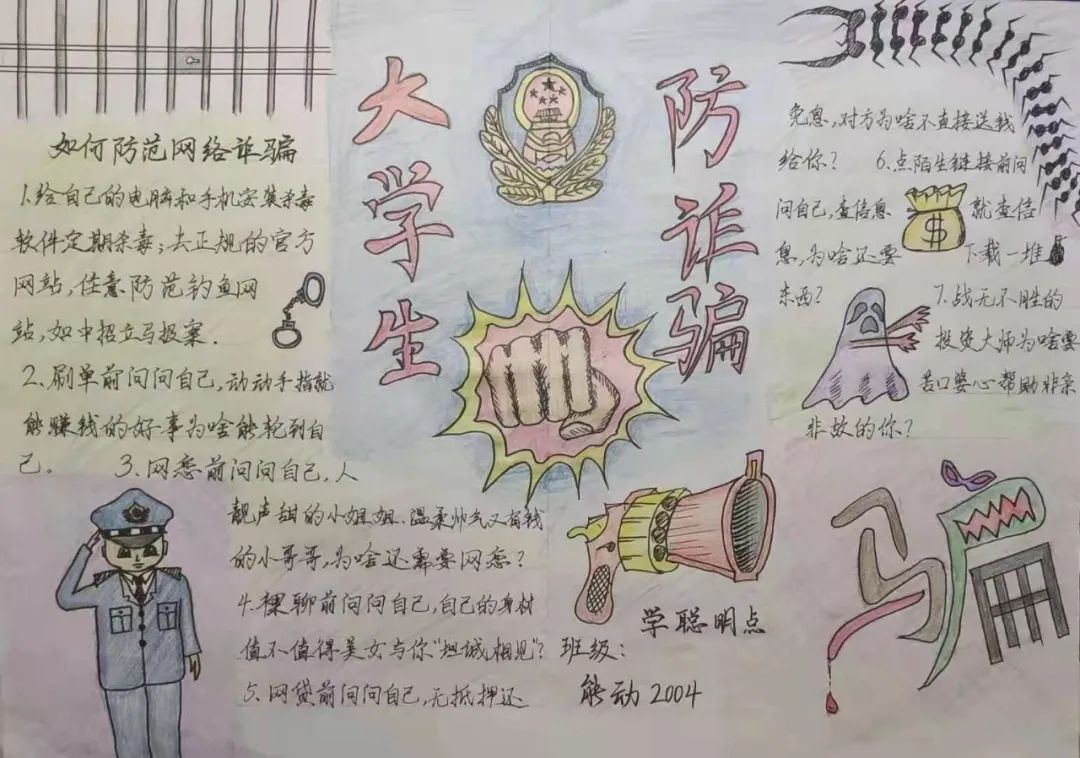 大学生
防诈骗
如何防范网络诈骗
1.给自己的电脑和手机安装杀毒
软件定期杀毒;去正规的官方
网站,任意防范钓鱼网
站,如中招立马报案.
2、刷单前问问自己,动动手指就
能赚钱的好事为啥能轮到自
己。 3、网恋前问问自己,人
靓声甜的小姐姐、温柔帅气又有钱
的小哥哥,为啥还需要网恋?
4、裸聊前问问自己,自己的身材
值不值得美女与你“坦诚相见”?
5、网贷前问问自己,无抵押还
免息,对方为啥不直接送钱
给你? 6.点陌生链接前问
问自己,查信息 就查信
息,为啥还要 下载一堆
东西? 7.战无不胜的
投资大师为啥要
苦口婆心帮助非亲
非故的你?
学聪明点
班级:
能动2004
骗